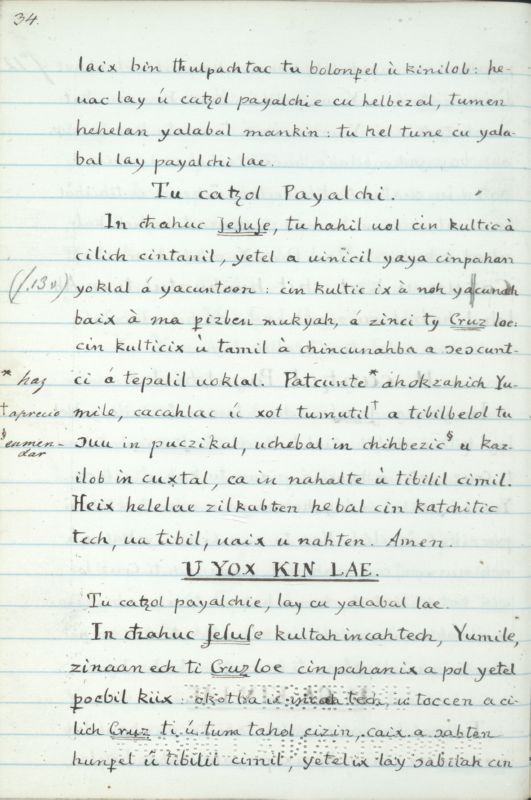 34.
laix bin thulpachtac tu bolonp̵el ù kinilob: he-
uac lay ú catꜩol payalchie cu helbezal, tumen
hehelan yalabal mankin: tu hel tune cu yala-
bal lay payalchi lae.
Tu catꜩol Payalchi.
In c̵hahuc Jesuſe, tu hahil uol cin kultic à
cilich cintanil, yetel a uinicil yaya cinpahan
(f. 13 v.) yoklal á yacuntoon: cin kultic ix à noh yacunah
baix à ma p̵izben mukyah, á zinci ty Cruz loe:
cin kulticix ù tamil à chincunahba a ɔeɔcunt-
* haz ci á tepalil uoklal. Patcunte* ahokzahich Yu-
† aprecio mile, cacahlac ú xot tumutil† a tibilbelol tu
§ enmen-dar ɔuu in puczikal, uchebal in chihbezic§ u kaz-
ilob in cuxtal, ca in nahalte ù tibilil cimil.
Heix helelae zilkabten hebal cin katchitic
tech, ua tibil, uaix u nahten. Amen.
U YOX KIN LAE.
Tu catꜩol payalchie, lay cu yalabal lae.
In c̵hahuc Jeſuſe kultah incahtech, Yumile,
zinaan ech ti Cruz loe cin pahanix a pol yetel
p̵oebil kiix: okotba ix incah tech, u toccen a ci-
lich Cruz ti ú tum tahol cizin, caix a ɔabten
hunp̵el ù tibilil cimil, yetelix lay ɔabilah cin